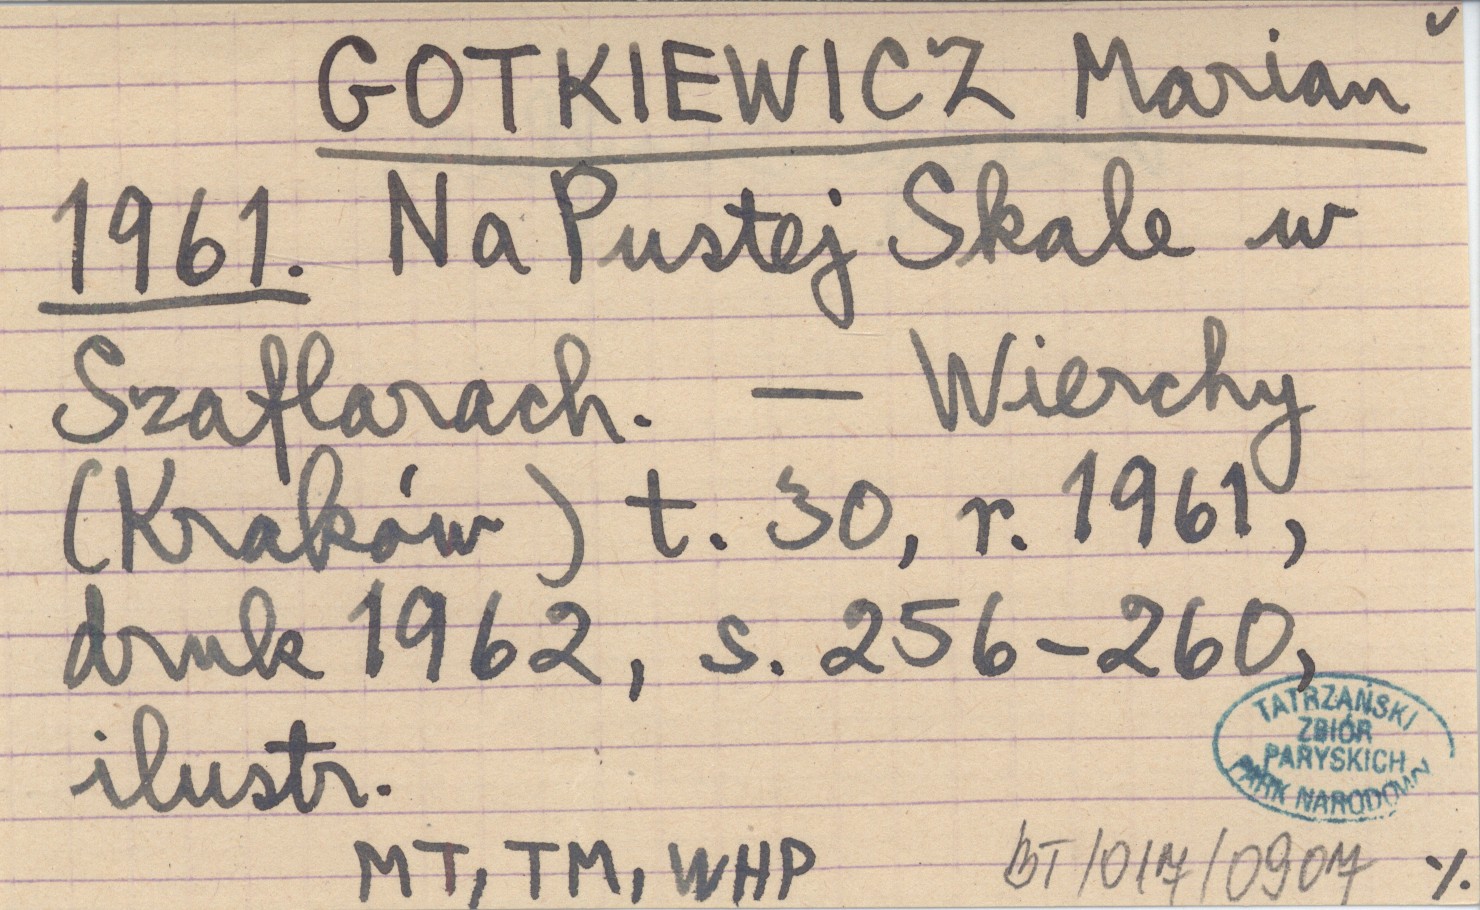 GOTKIEWICZ Marian
1961. Na Pustej Skale w
Szaflarach. — Wierchy
(Kraków) t. 30, r. 1961,
druk 1962, s. 256-260,
ilustr.
TATRZAŃSKI
ZBIÓR
PARYSKICH
PARK NARODOWY
MT, TM, WHP
BT/017/0907 ./.